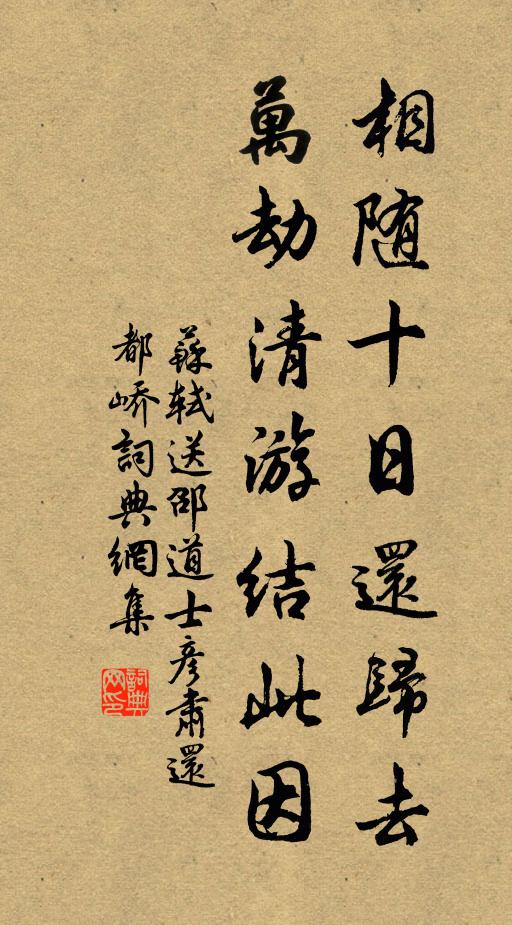 相随十日還歸去
萬劫清游結此因
蘇軾送邵道士彦肅還
都嶠詞典網集
詞典网印